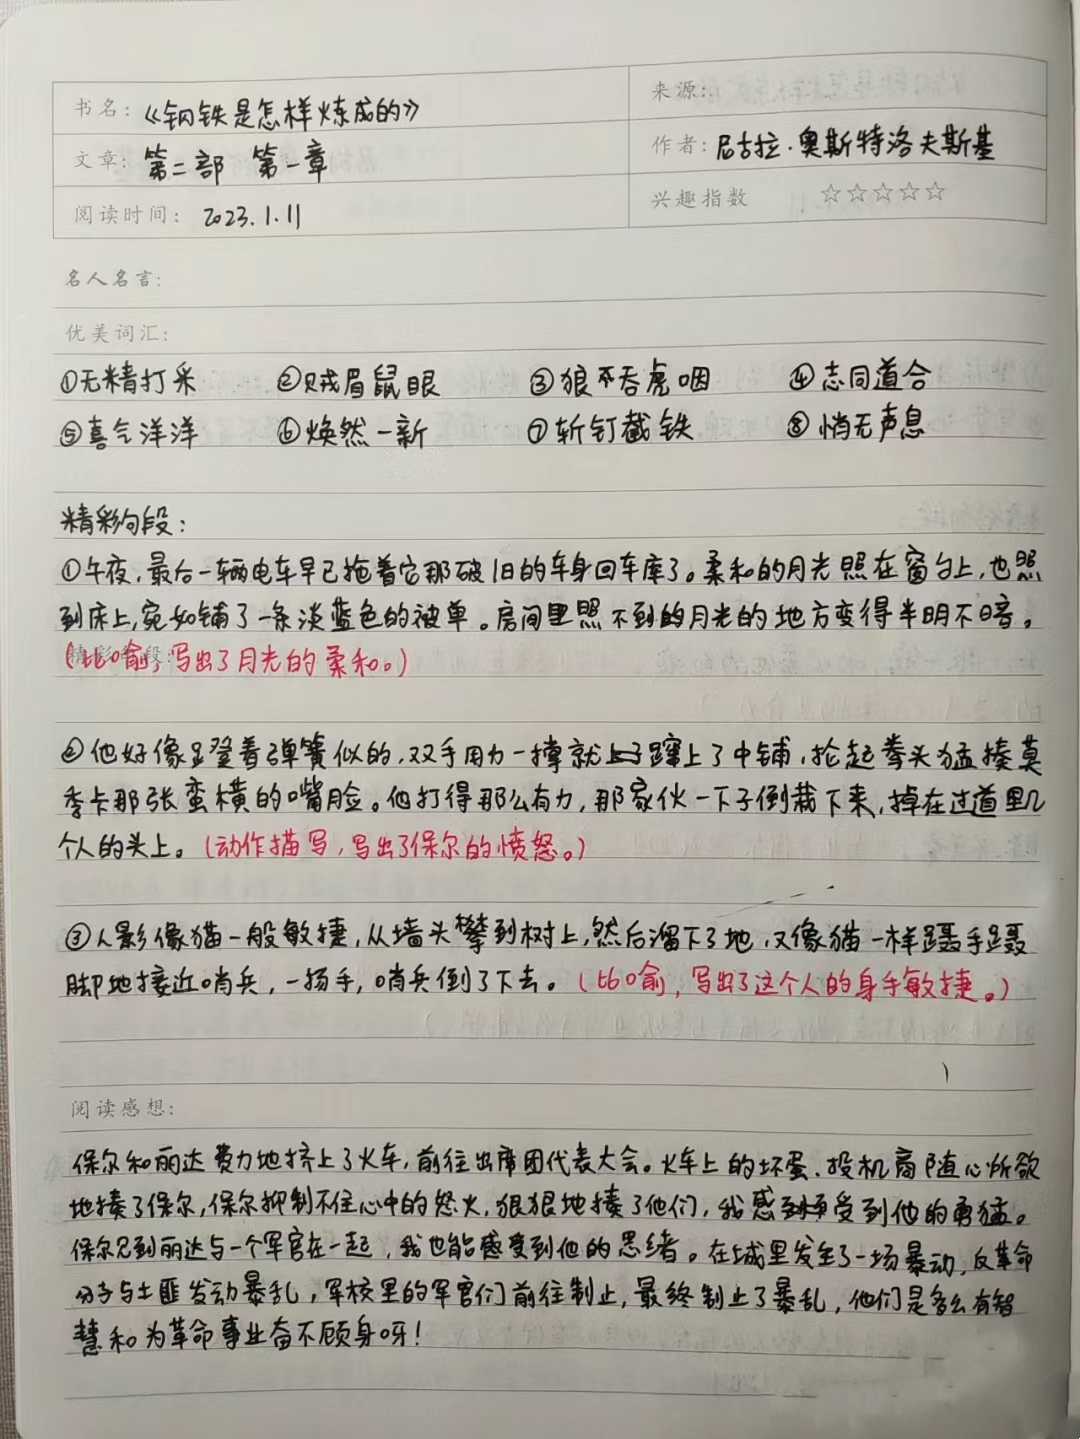 书名：《钢铁是怎样炼成的》
来源：
文章：第二部 第一章
作者：尼古拉·奥斯特洛夫斯基
阅读时间：2023.1.11
兴趣指数 ☆☆☆☆☆
名人名言：
优美词汇：
①无精打采 ②贼眉鼠眼 ③狼吞虎咽 ④志同道合
⑤喜气洋洋 ⑥焕然一新 ⑦斩钉截铁 ⑧悄无声息
精彩句段：
①午夜，最后一辆电车早已拖着它那破旧的车身回车库了。柔和的月光照在窗台上，也照
到床上，宛如铺了一条淡蓝色的被单。房间里照不到的月光的地方变得半明不暗。
精彩句段：
（比喻，写出了月光的柔和。）
②他好像蹬着弹簧似的，双手用力一撑就蹿上了中铺，抡起拳头猛揍莫
季卡那张蛮横的嘴脸。他打得那么有力，那家伙一下子倒栽下来，掉在过道里几
个人的头上。（动作描写，写出了保尔的愤怒。）
③人影像猫一般敏捷，从墙头攀到树上，然后溜下了地，又像猫一样蹑手蹑
脚地接近哨兵，一扬手，哨兵倒了下去。（比喻，写出了这个人的身手敏捷。）
阅读感想：
保尔和丽达费力地挤上了火车，前往出席团代表大会。火车上的坏蛋、投机商随心所欲
地揍了保尔，保尔抑制不住心中的怒火，狠狠地揍了他们，我感受到他的勇猛。
保尔见到丽达与一个军官在一起，我也能感受到他的思绪。在城里发生了一场暴动，反革命
分子与土匪发动暴乱，军校里的军官们前往制止，最终制止了暴乱，他们是多么有智
慧和为革命事业奋不顾身呀！